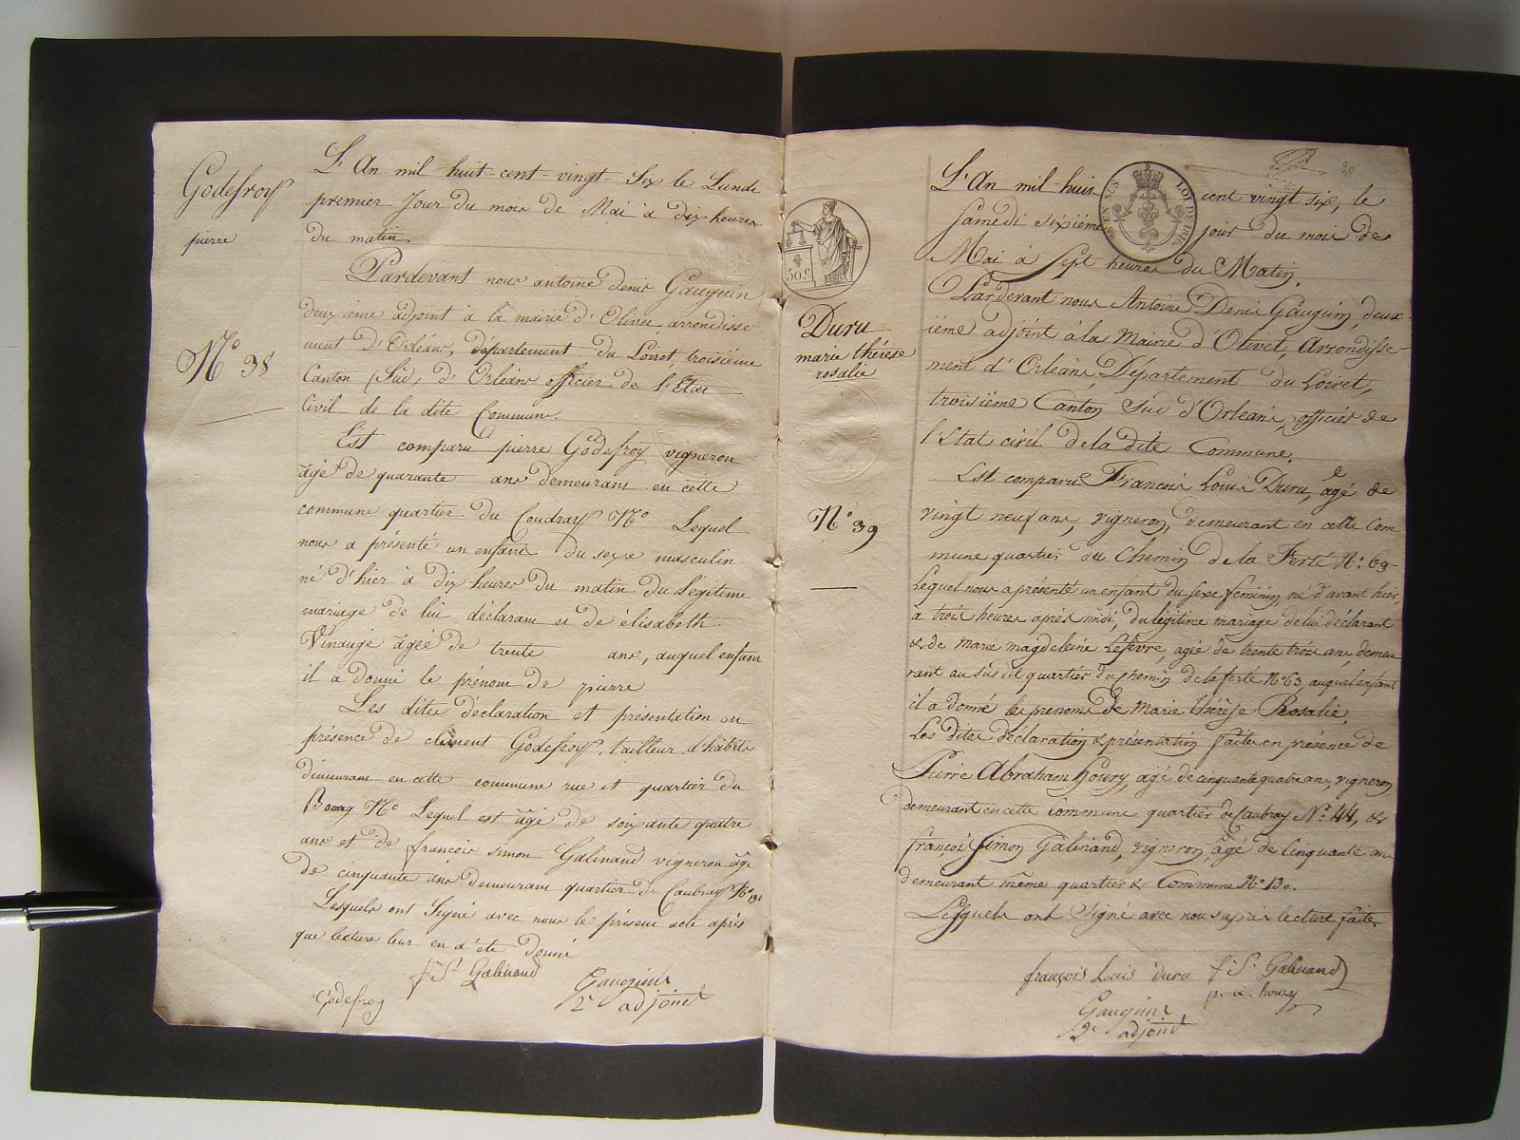 Godefroy
pierre
N° 38
L'An mil huit-cent-vingt-Six le Lundi
premier Jour du mois de Mai à dix heures
du matin.
Pardevant nous antoine denis Gauguin
deuxième adjoint à la mairie d'Olivet arrondisse-
ment D'Orléans, département du Loiret, troisième
Canton, Sud, d'Orléans officier de l'Etat
Civil de la dite Commune.
Est comparu pierre Godefroy vigneron
âgé de quarante ans demeurant en cette
commune quartier du Coudray N° Lequel
nous a présenté un enfant du sexe masculin
né d'hier à dix heures du matin du Légitime
mariage de lui déclarant et de élisabeth
Vinauge âgée de trente ans, auquel enfant
il a donné le prénom de pierre
Les dites déclaration et présentation en
présence de clément Godefroy, tailleur d'habits
demeurant en cette commune rue et quartier du
Bourg N° Lequel est âgé de soixante quatre
ans et de françois simon Galinand vigneron âgé
de cinquante ans demeurant quartier de Caubray N°
Lesquels ont Signé avec nous le présent acte après
que lecture leur en a été donné
f. S. Galinand
Godefroy
Gauguin
2e adjoint
50 c.
Duru
marie thérèse
rosalie
N° 39
L'An mil huit cent vingt six, le
Samedi sixième jour du mois de
Mai à Sept heures du Matin.
Pardevant nous Antoine Denis Gauguin, deux-
ième adjoint à la Mairie d'Olivet, Arrondisse-
ment d'Orléans, Département du Loiret,
troisième Canton Sud d'Orléans, officier de
l'Etat civil de la dite Commune.
Est comparu François Louis Duru, âgé de
vingt neuf ans, vigneron, demeurant en cette Com-
mune quartier du Chemin de la Ferté N° 69
Lequel nous a présenté un enfant du sexe féminin né d'avant hier,
à trois heures après midi, du légitime mariage de lui déclarant
& de Marie magdeleine Lefevre, agée de trente trois ans, demeu-
rant au susdit quartier du chemin de la ferté N° 63, auquel enfant
il a donné les prenoms de Marie thérèse Rosalie.
Les dites déclaration & présentation faites en présence de
Pierre Abraham houry, agé de cinquante quatre ans, vigneron
demeurant en cette Commune quartier de Caubray N° 44, &
françois Simon Galinand, vigneron, âgé de Cinquante ans
demeurant même quartier & Commune N° 130.
Lesquels ont Signé avec nous après lecture faite.
françois Louis duru f. S. Galinand
p. a. houry
Gauguin
2e adjoint